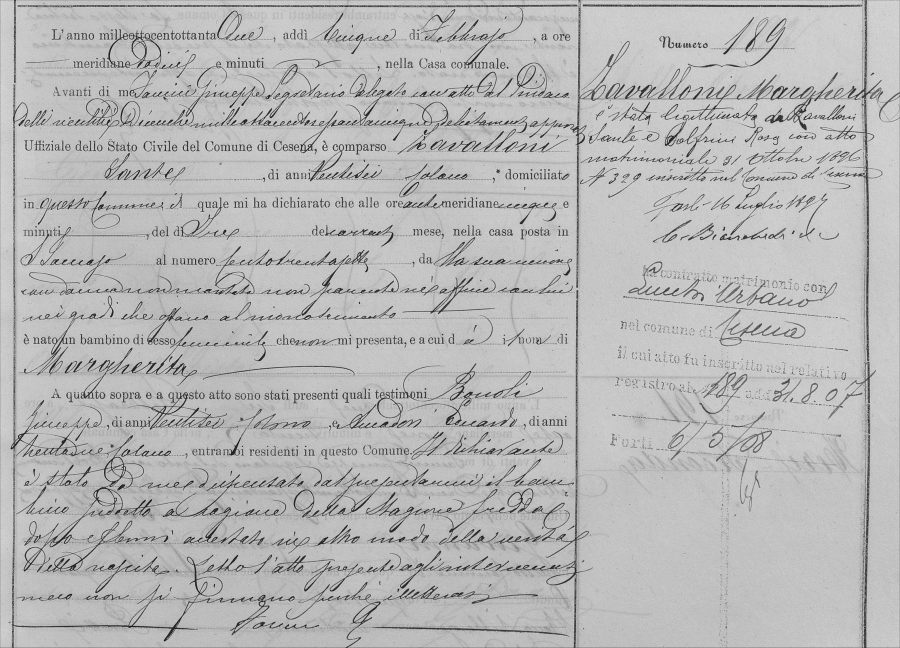 L'anno milleottocentottanta Due, addì Cinque di Febbrajo, a ore
meridiane Dodici e minuti, nella Casa comunale.
Avanti di me Giuseppe Segretario Delegato con atto del Sindaco
Uffiziale dello Stato Civile del Comune di Cesena, è comparso Zavalloni
Sante, di anni Ventisei colono, domiciliato
in questo Comune il quale mi ha dichiarato che alle ore ante meridiane cinque e
minuti, del dì Tre del corrente mese, nella casa posta in
S. al numero centotrentasette, da Ila sua unione
con donna non maritata non parente nè affine con lui
nei gradi che ostano al matrimonio
è nato un bambino di sesso femminile che non mi presenta, e a cui dà il nome di
Margherita
A quanto sopra e a questo atto sono stati presenti quali testimoni Bonoli
Giuseppe, di anni Ventisei colono, e Amadori Edoardo, di anni
trentadue colono, entrambi residenti in questo Comune. Il dichiarante
è stato da me dispensato dal presentarmi il bam-
bino predetto a ragione della stagione fredda e
dopo essermi accertato in altro modo della verità
della nascita. Letto l'atto presente agli intervenuti
meco non si firmano perchè illetterati
Numero 189
Zavalloni Margherita
è stata legittimata da Zavalloni
Sante e Rosa con atto
matrimoniale 31 Ottobre 1896
N 329 inscritto nel Comune di Cesena
Forlì 16 Luglio 1897
ha contratto matrimonio con
Urbano
nel comune di Cesena
il cui atto fu inscritto nel relativo
registro al N. 189 addì 31.8.07
Forlì 6/5/08